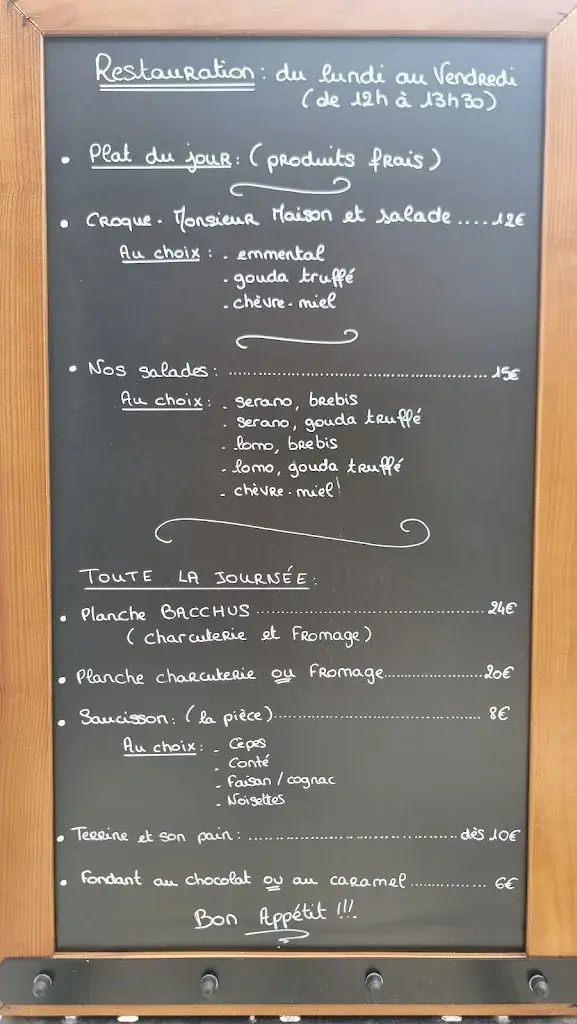 Restauration : du lundi au Vendredi
(de 12h à 13h30)
• Plat du jour : (produits frais)
• Croque-Monsieur Maison et salade .... 12€
Au choix : - emmental
- gouda truffé
- chèvre-miel
• Nos salades : ........................................ 15€
Au choix : - serano, brebis
- serano, gouda truffé
- lomo, brebis
- lomo, gouda truffé
- chèvre-miel
TOUTE LA JOURNÉE :
• Planche BACCHUS ........................................ 24€
(charcuterie et Fromage)
• Planche charcuterie ou Fromage .................... 20€
• Saucisson : (la pièce) ................................ 8€
Au choix : - Cèpes
- Conté
- Faisan / cognac
- Noisettes
• Terrine et son pain : ................................ dès 10€
• Fondant au chocolat ou au caramel ............ 6€
Bon Appétit !!!